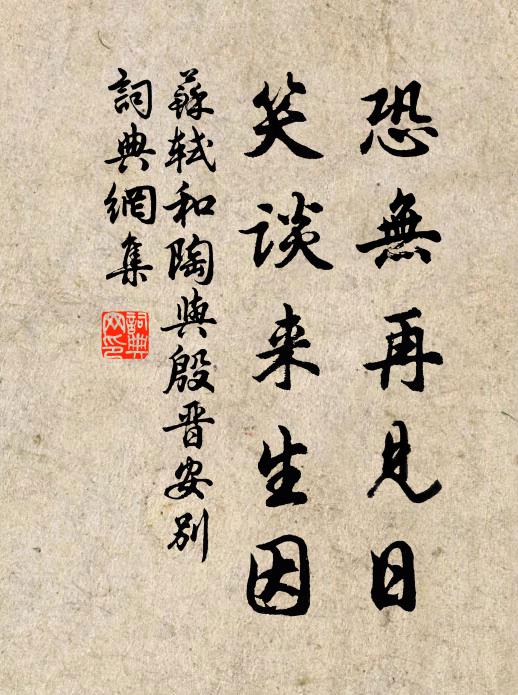 恐無再見日
笑談来生因
蘇軾和陶與殷晋安别
詞典網集
詞典网印